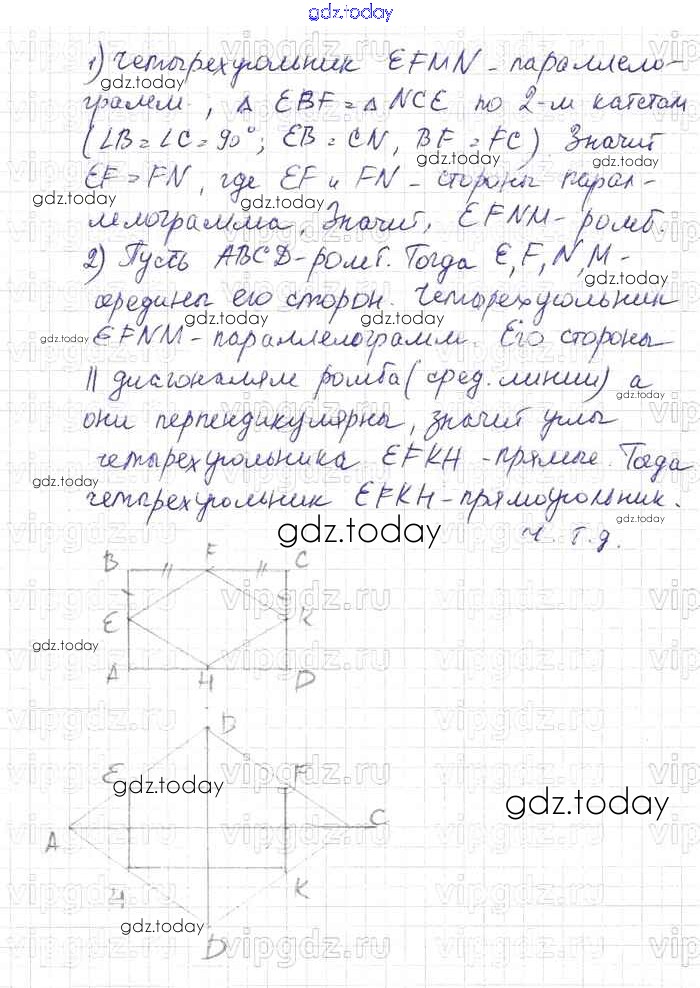 gdz.today
1) Четырехугольник EFMN - параллело-
gdz.today
грамм, Δ EBF = Δ NCE по 2-м катетам
(∠B = ∠C = 90°; EB = CN, BF = FC) Значит
gdz.today
EF = FN, где EF и FN - стороны парал-
gdz.today
лелограмма. Значит, EFNM - ромб.
2) Пусть ABCD - ромб. Тогда E, F, N, M -
gdz.today
середины его сторон. Четырехугольник
gdz.today gdz.today
gdz.today EFNM - параллелограмм. Его стороны
|| диагоналям ромба (сред. линии) а
gdz.today
они перпендикулярны, значит углы
четырехугольника EFKH - прямые. Тогда
gdz.today
четырехугольник EFKH - прямоугольник.
gdz.today gdz.today
ч. т. д.
B F C
E K
gdz.today
A H D
B
E F
gdz.today gdz.today
A C
H K
gdz.today
D
vipgdz.ru